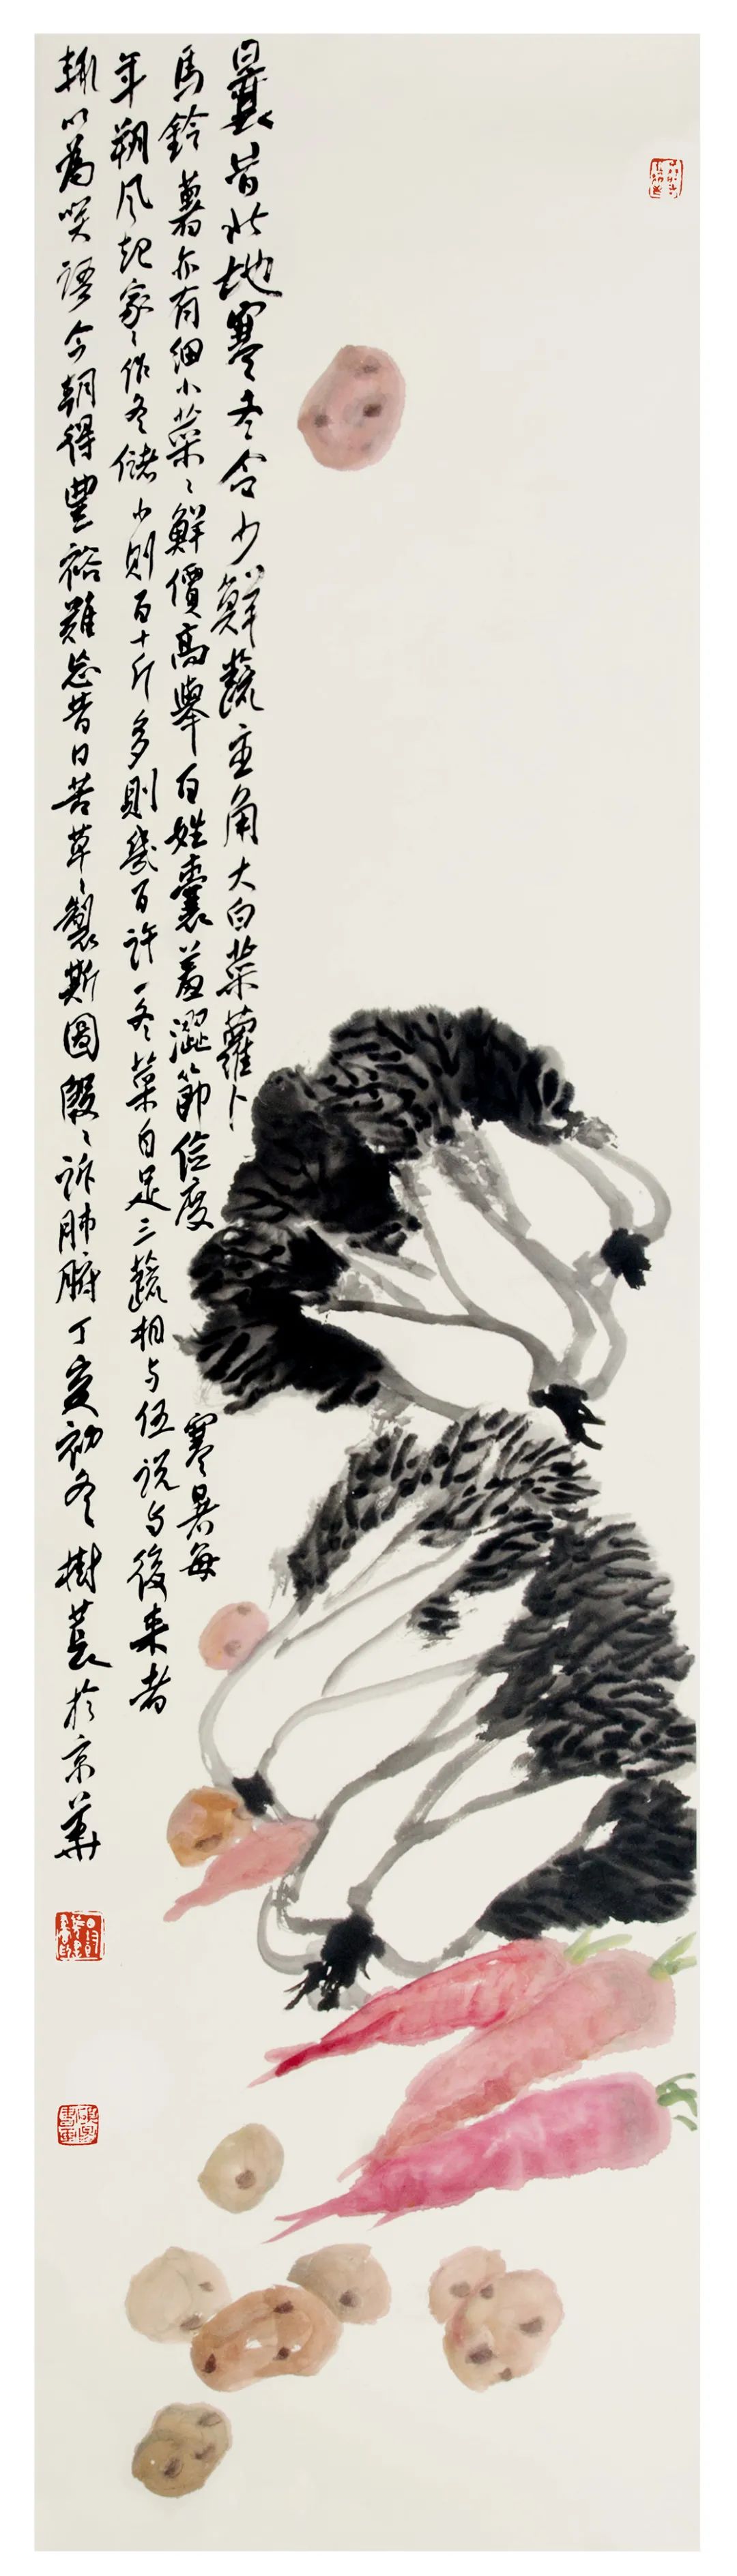 曩昔北地寒冬令少鮮蔬主角大白菜蘿卜
馬鈴薯亦有細小菜々鮮價高舉百姓囊羞澀節儉度寒暑每
年朔風起家々作冬儲小則百十斤多則幾百許一冬菜自足三蔬相与伍説与後来者
輒以為笑語今朝得豐裕難忘昔日苦草々製斯圖殷々訴肺腑丁亥初冬樹於京華